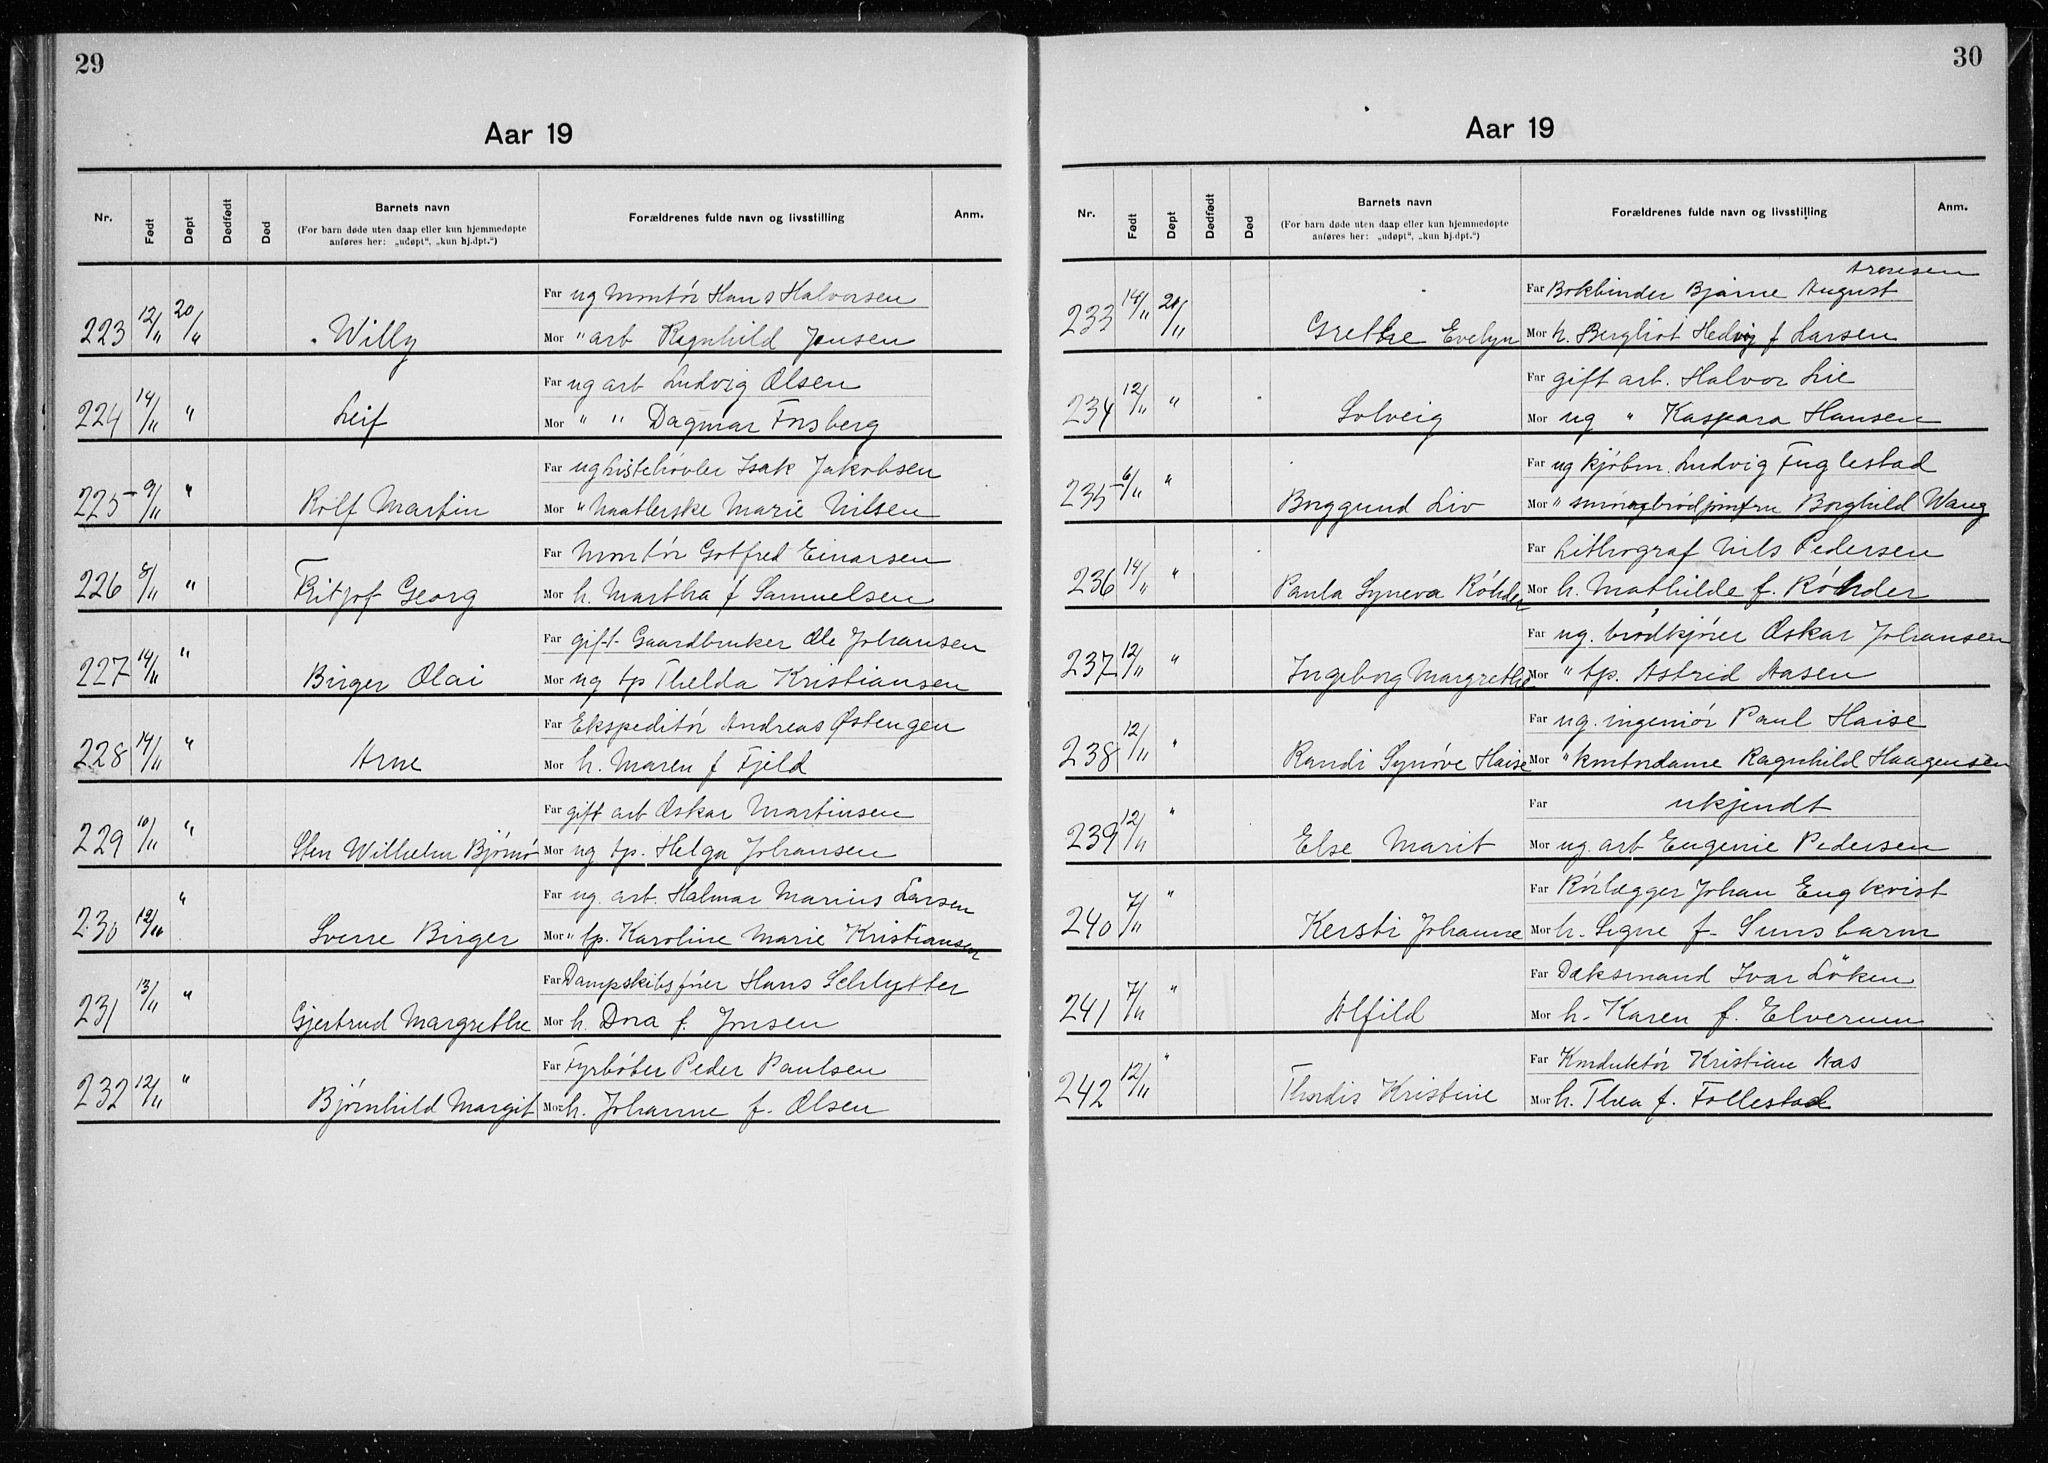 29
Aar 19
Nr. Født Døpt Dødfødt Død Barnets navn (For barn døde uten daap eller kun hjemmedøpte anføres her: „udøpt“, „kun hj.dpt.“) Forældrenes fulde navn og livsstilling Anm.
Far ug montør Hans Halvorsen
223 12/11 20/11 Willy Mor " arb Ragnhild Jensen
Far ug arb Ludvig Olsen
224 14/11 " Leif Mor " " Dagmar Forsberg
Far ug Listehøvler Isak Jakobsen
225 9/11 " Rolf Martin Mor " Naatlerske Marie Nilsen
Far Montør Gotfred Einarsen
226 8/11 " Fritjof Georg Mor h. Martha f Samuelsen
Far gift Gaardbruker Ole Johansen
227 14/11 " Birger Olai Mor ug tp Thelda Kristiansen
Far Ekspeditør Andreas Østengen
228 14/11 " Arne Mor h. Maren f Fjeld
Far gift arb Oskar Martinsen
229 10/11 " Sten Wilhelm Bjørnø Mor ug tp. Helga Johansen
Far ug. arb. Halmar Marius Larsen
230 19/10 " Sverre Birger Mor " tp. Karoline Marie Kristiansen
Far Dampskibsfører Hans Schlytter
231 13/11 " Gjertrud Margrethe Mor h. Dora f. Jonsen
Far Fyrbøter Peder Paulsen
232 12/11 " Bjørnhild Margit Mor h. Johanne f. Olsen
30
Aar 19
Nr. Født Døpt Dødfødt Død Barnets navn (For barn døde uten daap eller kun hjemmedøpte anføres her: „udøpt“, „kun hj.dpt.“) Forældrenes fulde navn og livsstilling Anm.
Arnesen
Far Bokbinder Bjarne August
233 14/11 20/11 Grethe Evelyn Mor h. Bergliot Hedvig f Larsen
Far gift arb. Halvor Lie
234 12/11 " Solveig Mor ug " Kaspara Hansen
Far ug kjøbm. Ludvig Fuglestad
235 6/11 " Borggund Liv Mor " smørrebrødjomfru Borghild Wang
Far Lithograf Nils Pedersen
236 14/11 " Paula Syneva Röhder Mor h. Mathilde f. Röhder
Far ug. brødkjører Oskar Johansen
237 12/11 " Ingeborg Margrethe Mor " tp. Astrid Aasen
Far ug. ingeniør Paul Haise
238 12/11 " Randi Synøve Haise Mor " kontordame Ragnhild Haagensen
Far ukjendt
239 12/11 " Else Marit Mor ug. arb Eugenie Pedersen
Far Rørlægger Johan Engkvist
240 7/11 " Kersti Johanne Mor h. Signe f. Sunsbarm
Far Dæksmand Ivar Löken
241 7/11 " Alfild Mor h. Karen f. Elverum
Far Konduktør Kristian Aas
242 12/11 " Thordis Kristine Mor h. Thea f. Follestad